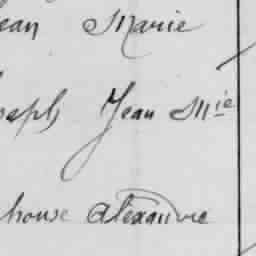 ean Marie
oseph Jean Mie
phonse Alexandre